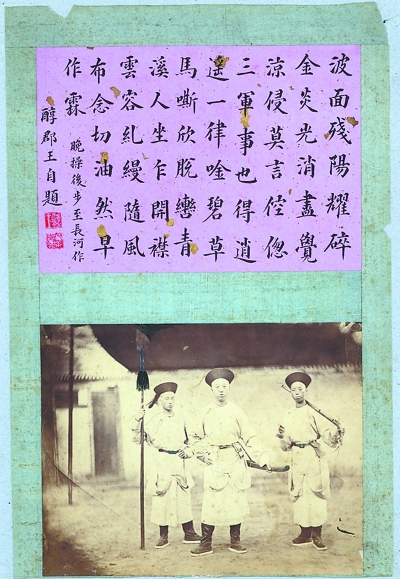 波面殘陽耀碎
金炎光消盡覺
涼侵莫言倥傯
三軍事也得逍
遥一律唫碧草
馬嘶欣脫轡青
溪人坐乍開襟
雲容糺縵隨風
布念切油然早
作霖
晚操後步至長河作
醇郡王自題